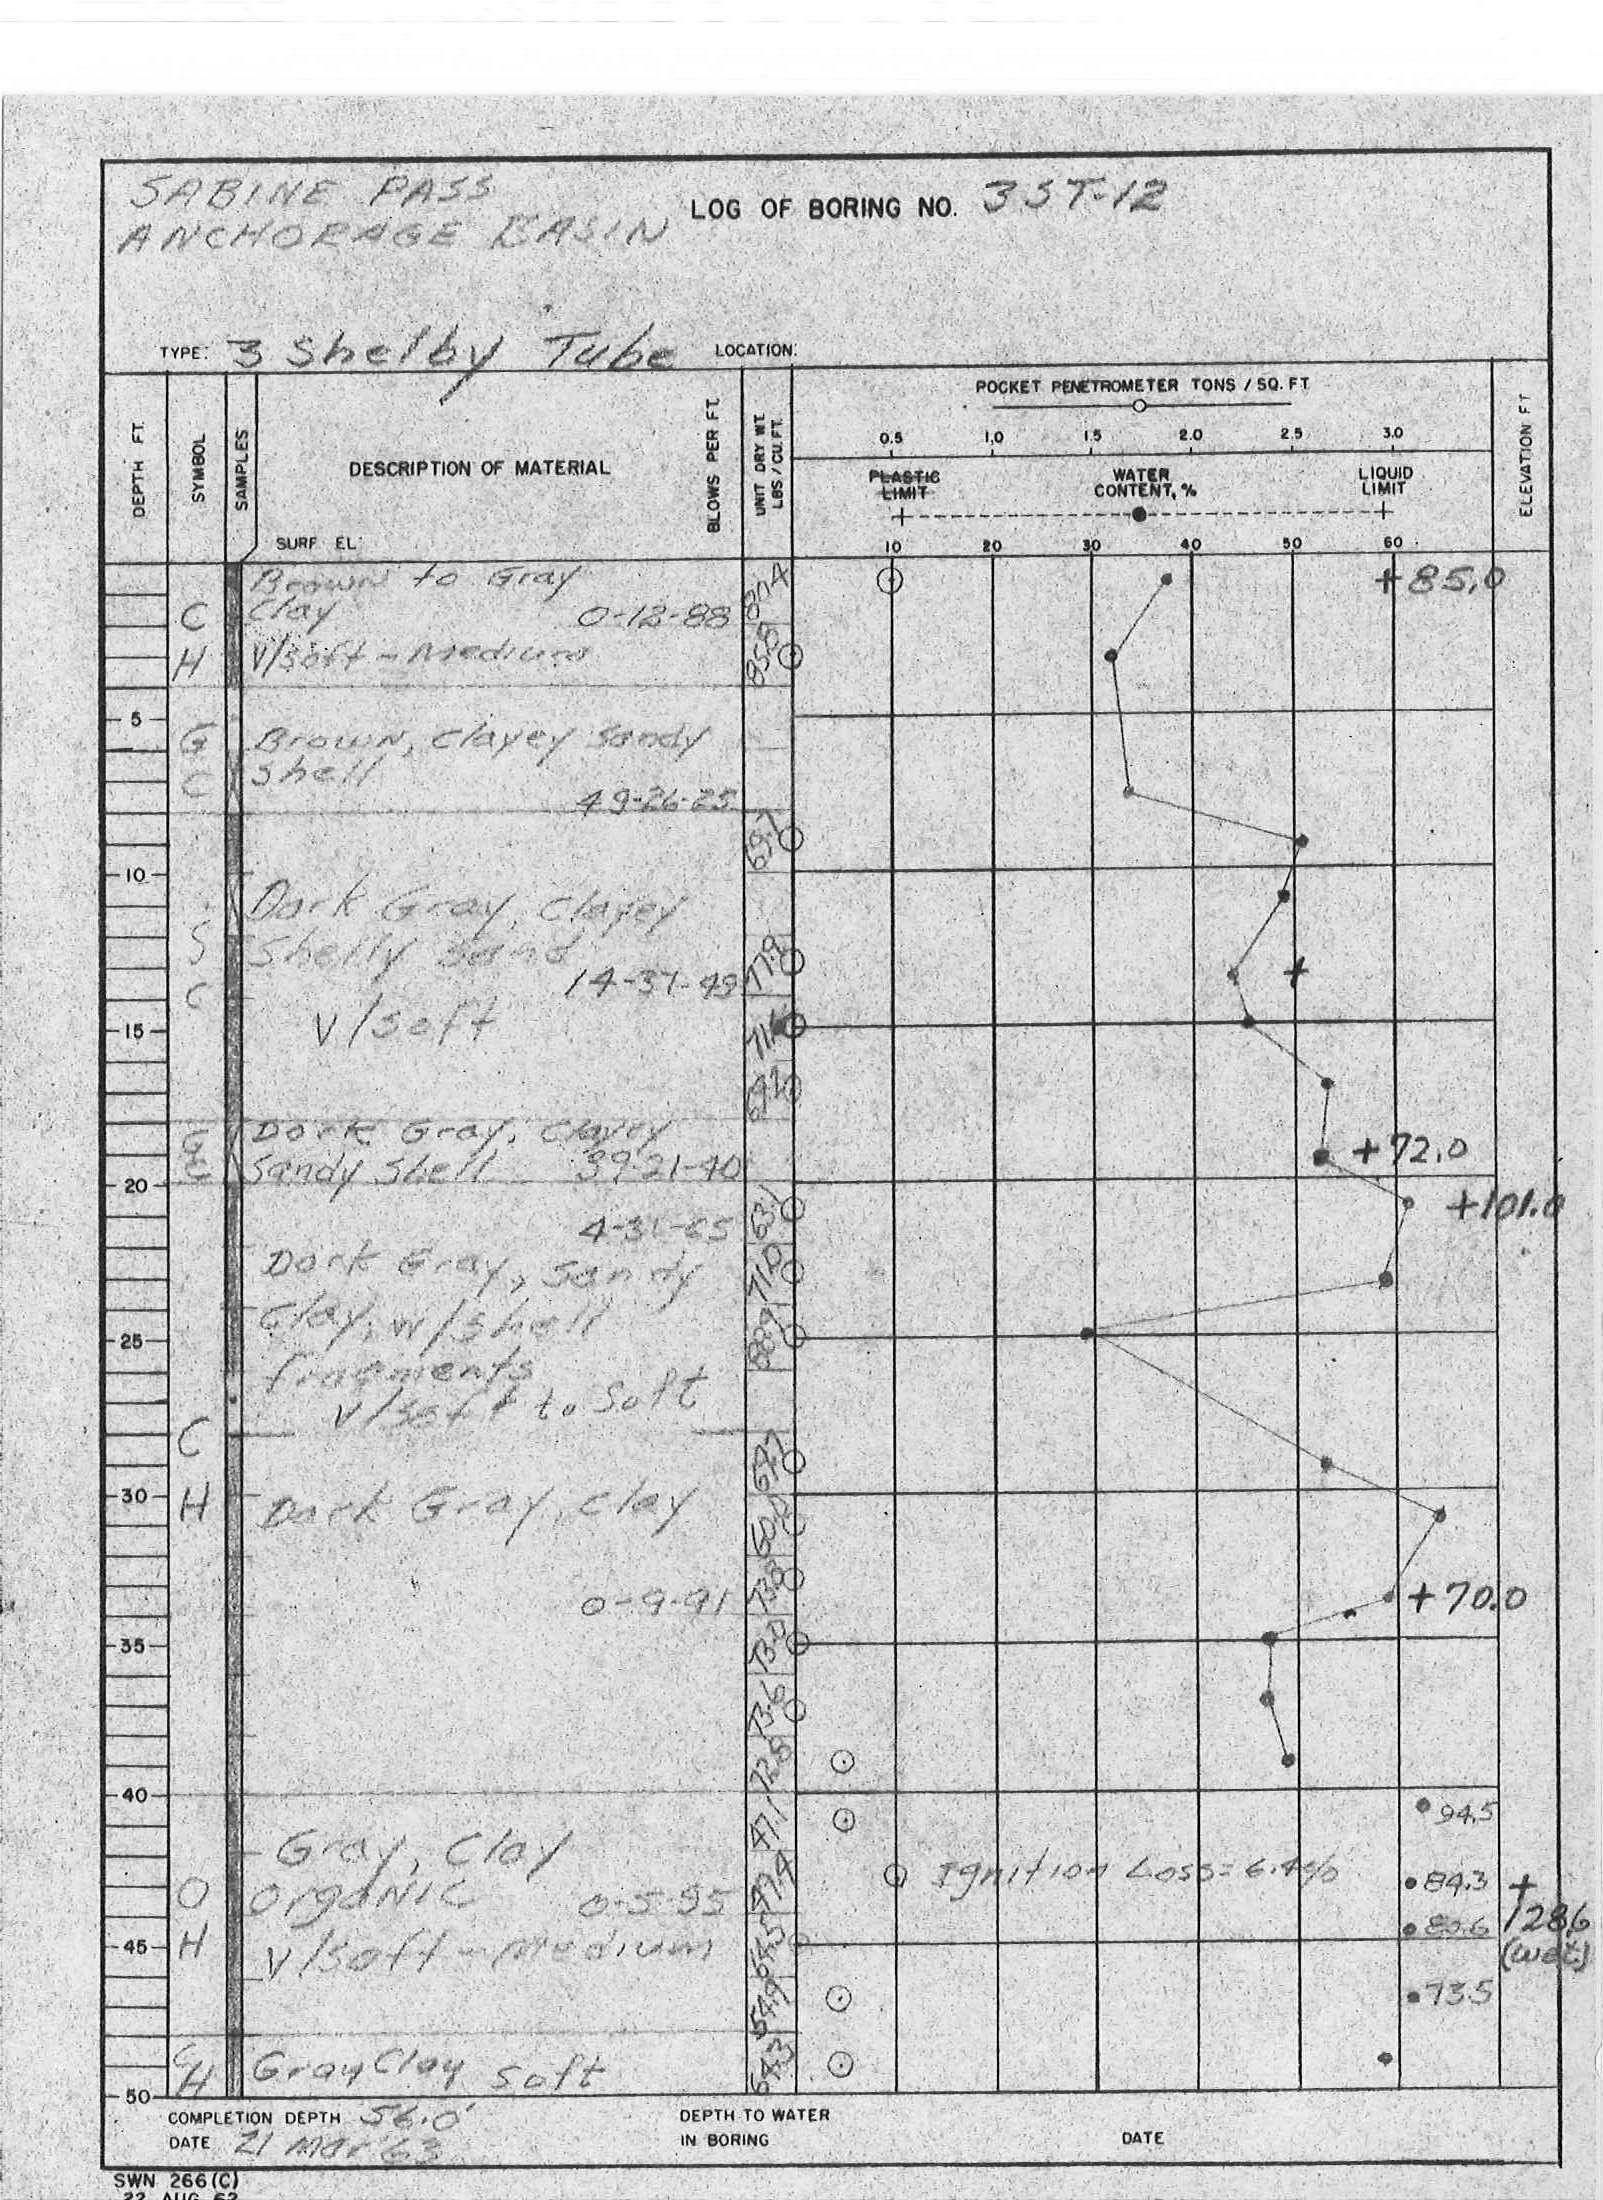 SABINE PASS
ANCHORAGE BASIN
LOG OF BORING NO. 3ST-12
TYPE: 3 Shelby Tube LOCATION:
DEPTH FT.
SYMBOL
SAMPLES
DESCRIPTION OF MATERIAL
SURF EL
BLOWS PER FT.
UNIT DRY WT.
LBS / CU. FT.
POCKET PENETROMETER TONS / SQ. FT.
0.5 1.0 1.5 2.0 2.5 3.0
PLASTIC LIMIT
WATER CONTENT, %
LIQUID LIMIT
10 20 30 40 50 60
ELEVATION FT
Brown to Gray
C Clay 0-12-88 80.4
H V/soft - Medium 85.8
+85.0
5
G Brown, Clayey Sandy
C Shell
49-26-25
69.7
10
Dark Gray, Clayey
S Shelly Sand 77.9
C 14-37-49
+
15 V/soft
69.2
G Dark Gray, Clayey
C Sandy Shell 39-21-40
+72.0
20
63.1 +101.0
Dark Gray, Sandy 71.0
Clay, w/shell
25 88.9
fragments
V/soft to Soft
C
67.7
30 H Dark Gray, clay
60.0
73.8
0-9-91 +70.0
35 73.0
73.6
72.8
40
94.5
47.1
Gray, Clay
O Organic 0-5-95
Ignition Loss = 6.4%
84.3 +
80.6 128.6
(wet)
45 H V/soft - Medium
54.9 73.5
C
H Gray Clay Soft
50
COMPLETION DEPTH 56.0'
DATE 21 Mar 63
DEPTH TO WATER
IN BORING DATE
SWN 266(C)
22 AUG 62